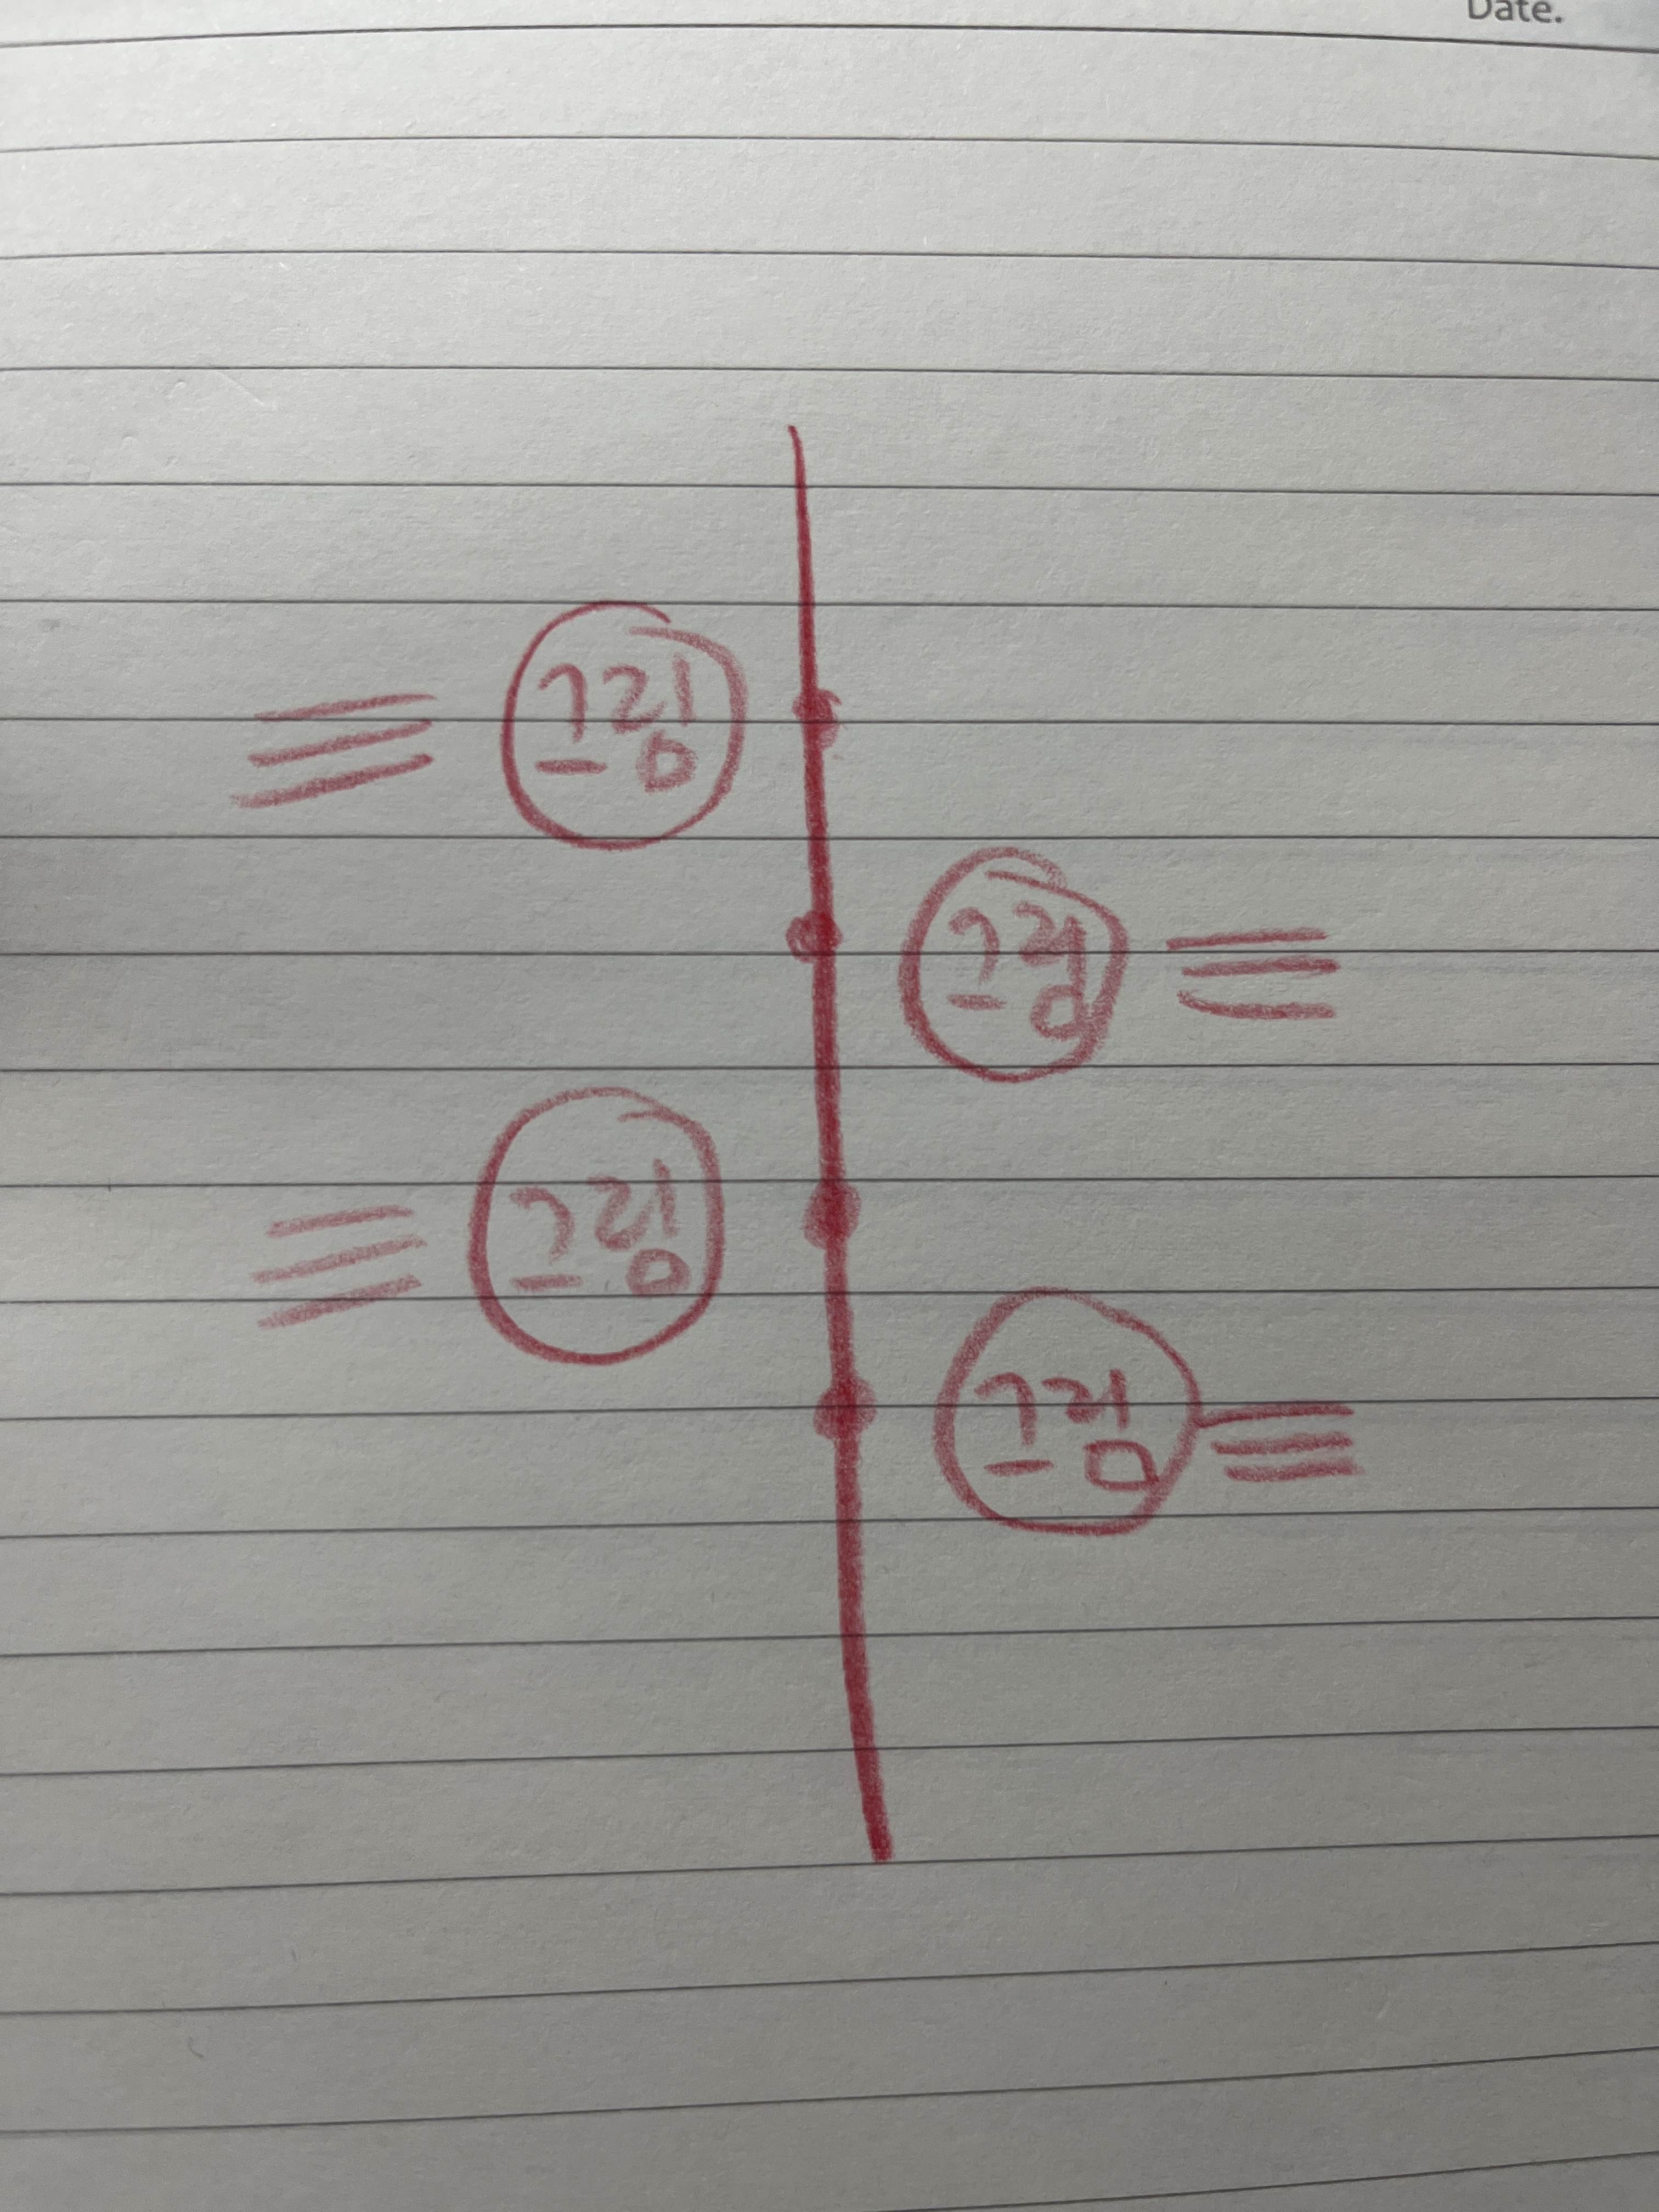 Date.
그림
그림
그림
그림